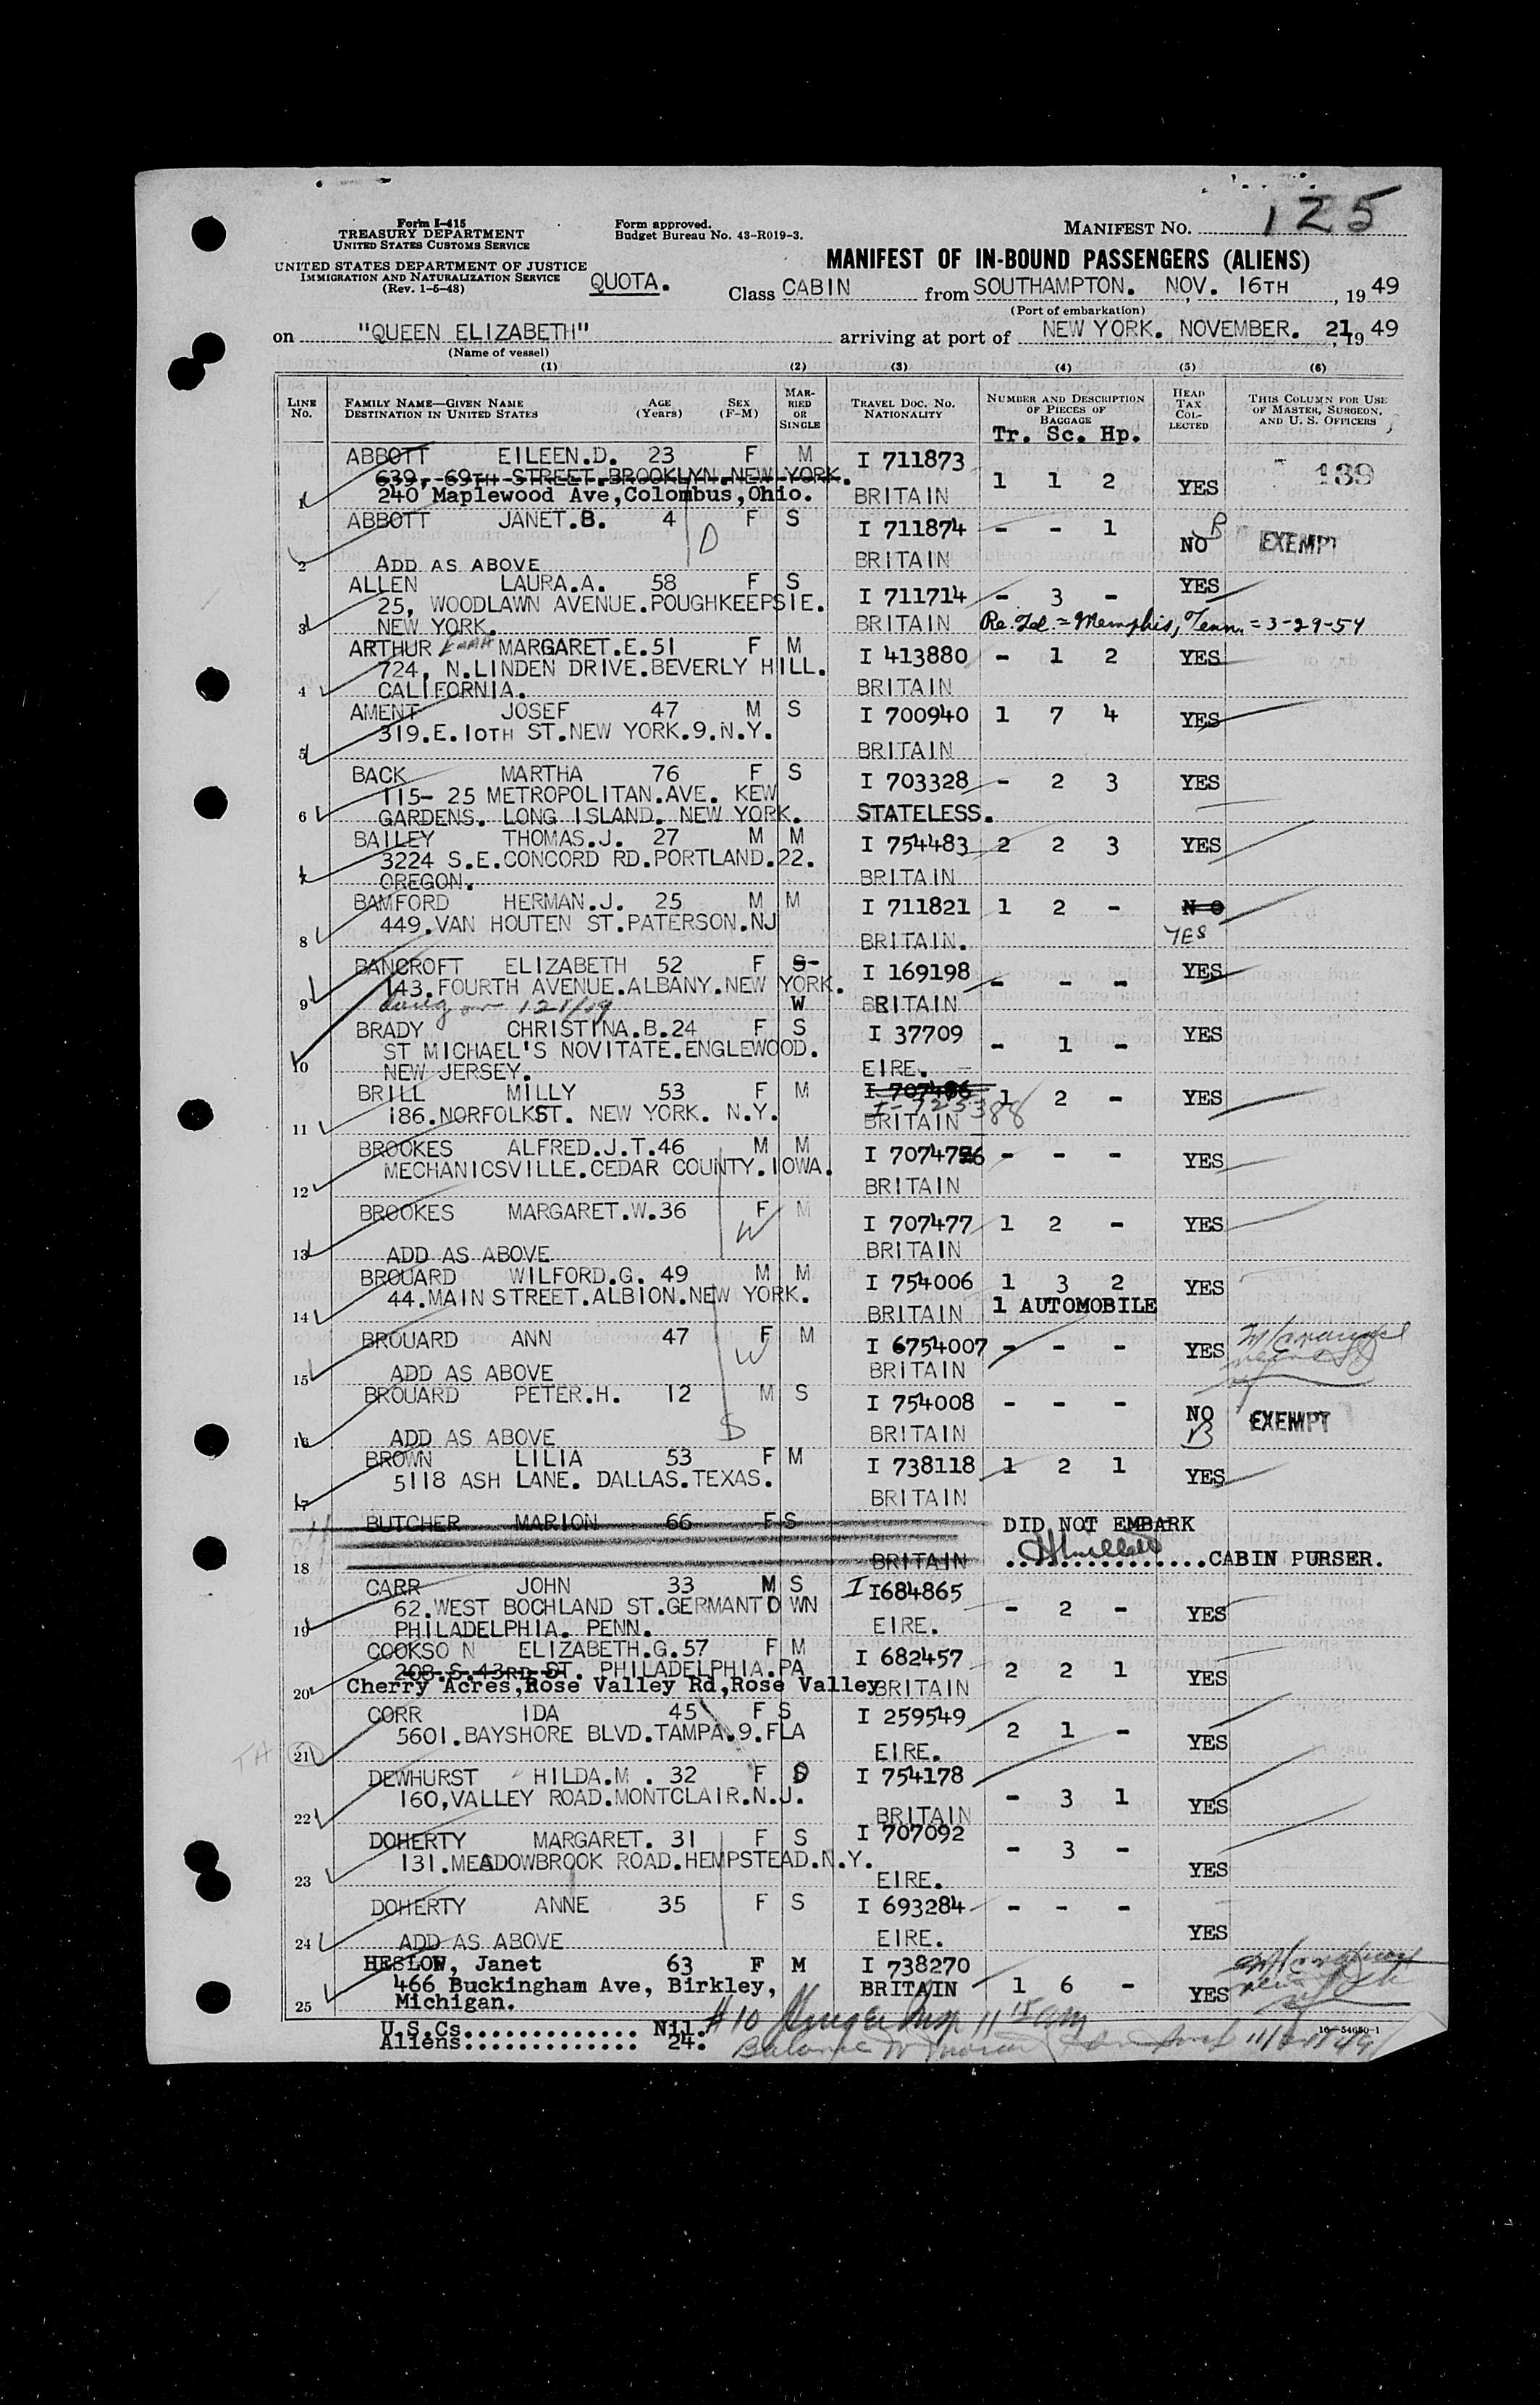 Form I-415
TREASURY DEPARTMENT
UNITED STATES CUSTOMS SERVICE
UNITED STATES DEPARTMENT OF JUSTICE
IMMIGRATION AND NATURALIZATION SERVICE
(Rev. 1-5-48)
Form approved.
Budget Bureau No. 43-R019-3.
MANIFEST NO. 125
MANIFEST OF IN-BOUND PASSENGERS (ALIENS)
QUOTA. Class CABIN from SOUTHAMPTON. NOV. 16TH, 1949
(Port of embarkation)
on "QUEEN ELIZABETH" arriving at port of NEW YORK. NOVEMBER. 21, 1949
(Name of vessel)
(1) (2) (3) (4) (5) (6)
LINE NO. FAMILY NAME—GIVEN NAME DESTINATION IN UNITED STATES AGE (Years) SEX (F-M) MARRIED OR SINGLE TRAVEL DOC. NO. NATIONALITY NUMBER AND DESCRIPTION OF PIECES OF BAGGAGE HEAD TAX COLLECTED THIS COLUMN FOR USE OF MASTER, SURGEON, AND U. S. OFFICERS
Tr. Sc. Hp.
ABBOTT EILEEN.D. 23 F M I 711873
639, 69TH STREET.BROOKLYN.NEW YORK. 1 1 2 YES 139
1 240 Maplewood Ave,Colombus,Ohio. BRITAIN
ABBOTT JANET.B. 4 F S I 711874 - - 1 NO EXEMPT
D
2 ADD AS ABOVE BRITAIN
ALLEN LAURA.A. 58 F S I 711714 - 3 - YES
25, WOODLAWN AVENUE.POUGHKEEPSIE.
3 NEW YORK. BRITAIN Re. Id. = Memphis, Tenn. = 3-29-54
ARTHUR MARGARET.E.51 F M I 413880 - 1 2 YES
724, N.LINDEN DRIVE.BEVERLY HILL.
4 CALIFORNIA. BRITAIN
AMENT JOSEF 47 M S I 700940 1 7 4 YES
319.E.10TH ST.NEW YORK.9.N.Y.
5 BRITAIN
BACK MARTHA 76 F S I 703328 - 2 3 YES
115- 25 METROPOLITAN.AVE. KEW
6 GARDENS. LONG ISLAND. NEW YORK. STATELESS.
BAILEY THOMAS.J. 27 M M I 754483 2 2 3 YES
3224 S.E.CONCORD RD.PORTLAND.22.
7 OREGON. BRITAIN
BAMFORD HERMAN.J. 25 M M I 711821 1 2 - NO
449.VAN HOUTEN ST.PATERSON.NJ YES
8 BRITAIN.
BANCROFT ELIZABETH 52 F S I 169198 - - - YES
143.FOURTH AVENUE.ALBANY.NEW YORK.
9 W BRITAIN
BRADY CHRISTINA.B.24 F S I 37709 - 1 - YES
ST MICHAEL'S NOVITATE.ENGLEWOOD.
10 NEW JERSEY. EIRE.
BRILL MILLY 53 F M I 707486 1 2 - YES
186.NORFOLKST. NEW YORK. N.Y. I-723388
11 BRITAIN
BROOKES ALFRED.J.T.46 M M I 707476 - - - YES
MECHANICSVILLE.CEDAR COUNTY.IOWA.
12 BRITAIN
BROOKES MARGARET.W.36 F M I 707477 1 2 - YES
W
13 ADD AS ABOVE BRITAIN
BROUARD WILFORD.G. 49 M M I 754006 1 3 2 YES
44.MAIN STREET.ALBION.NEW YORK. 1 AUTOMOBILE
14 BRITAIN
BROUARD ANN 47 F M I 6754007 - - - YES
W
15 ADD AS ABOVE BRITAIN
BROUARD PETER.H. 12 M S I 754008 - - - NO EXEMPT
S
16 ADD AS ABOVE BRITAIN
BROWN LILIA 53 F M I 738118 1 2 1 YES
5118 ASH LANE. DALLAS.TEXAS.
17 BRITAIN
BUTCHER MARION 66 F S DID NOT EMBARK
18 BRITAIN ..............CABIN PURSER.
CARR JOHN 33 M S I I684865 - 2 - YES
62.WEST BOCHLAND ST.GERMANTO WN
19 PHILADELPHIA. PENN. EIRE.
COOKSO N ELIZABETH.G.57 F M I 682457 2 2 1 YES
208.S.43RD ST. PHILADELPHIA.PA
20 Cherry Acres,Rose Valley Rd,Rose Valley BRITAIN
CORR IDA 45 F S I 259549 2 1 - YES
5601.BAYSHORE BLVD.TAMPA.9.FLA
21 EIRE.
DEWHURST HILDA.M. 32 F D I 754178 - 3 1 YES
160,VALLEY ROAD.MONTCLAIR.N.J.
22 BRITAIN
DOHERTY MARGARET. 31 F S I 707092 - 3 - YES
131.MEADOWBROOK ROAD.HEMPSTEAD.N.Y.
23 EIRE.
DOHERTY ANNE 35 F S I 693284 - - - YES
24 ADD AS ABOVE EIRE.
HESLOW, Janet 63 F M I 738270 1 6 - YES
466 Buckingham Ave, Birkley,
25 Michigan. BRITAIN
U.S.Cs.............. Nil. #10
Aliens.............. 24.
16-54650-1